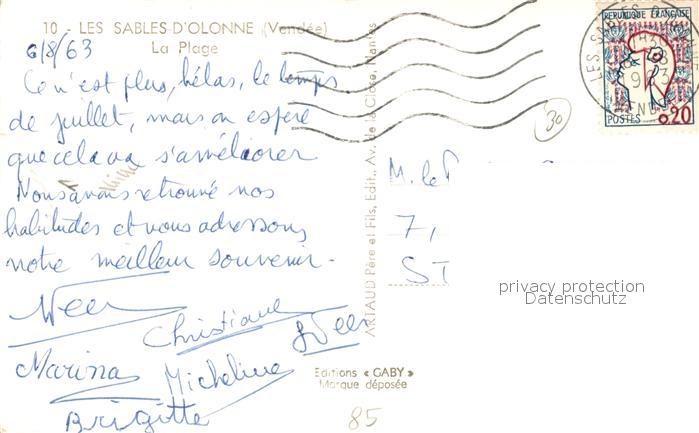 10 - LES SABLES-D'OLONNE (Vendée)
La Plage
6/8/63
Ce n'est plus, hélas, le temps
de juillet, mais on espère
que cela va s'améliorer
Nous avons retrouvé nos
habitudes et vous adressons
notre meilleur souvenir.
Christiane
Marina
Micheline
Brigitte
ARTAUD Père et Fils, Edit., Av. de la Close, Nantes
Editions « GABY »
Marque déposée
85
30
REPUBLIQUE FRANÇAISE
POSTES 0,20
LES SABLES
M. le
7,
ST
privacy protection
Datenschutz